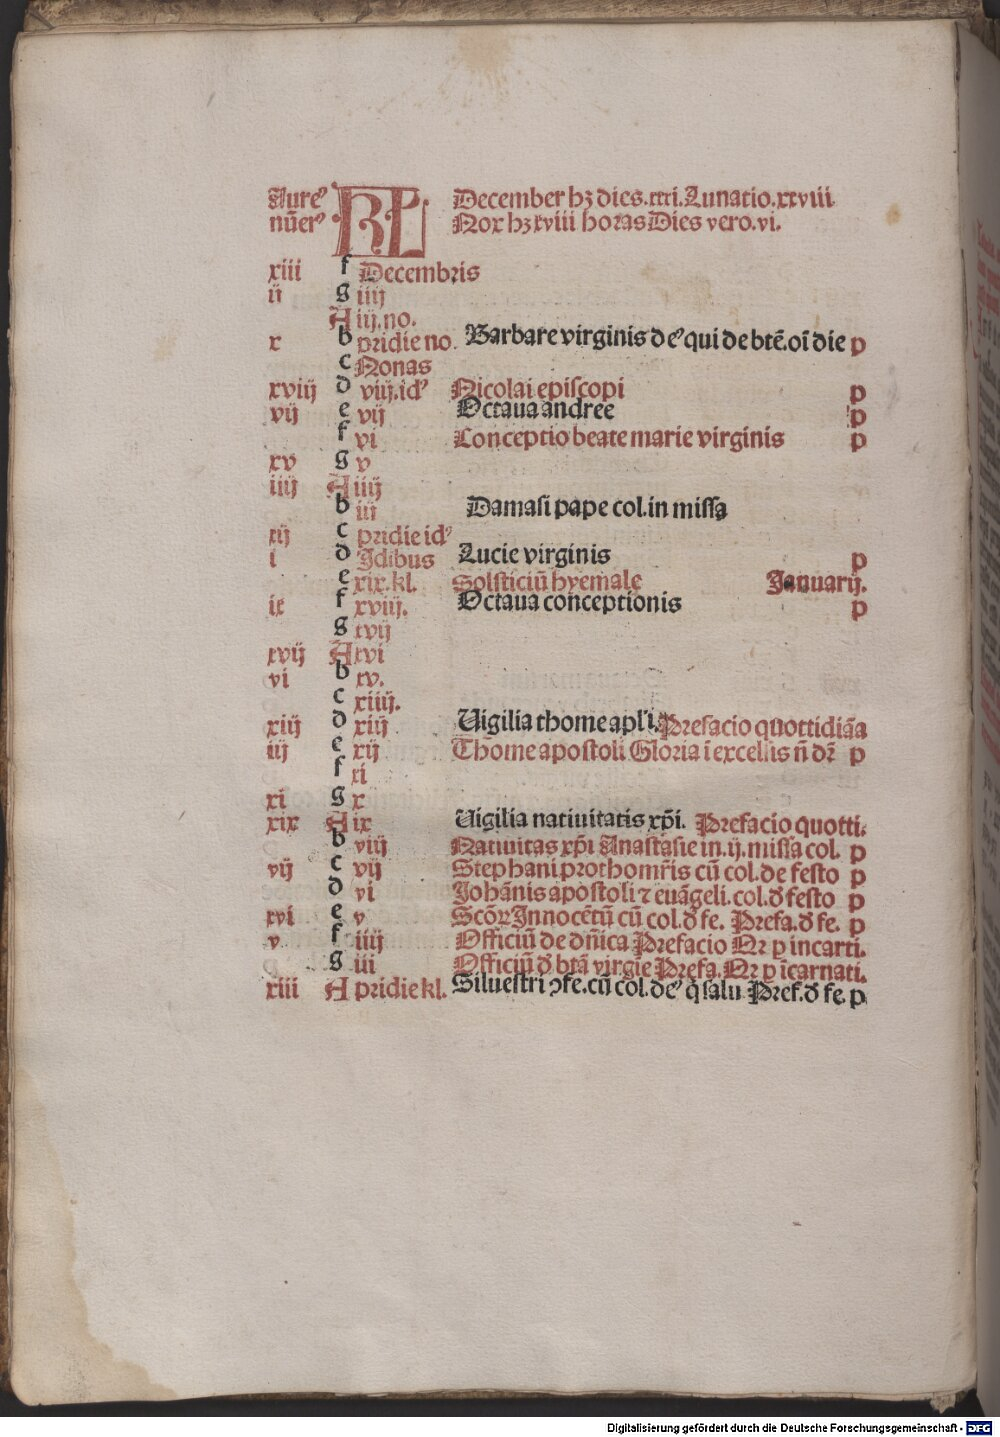 Aureꝰ KL December hꝫ dies.xxxi.Lunatio.xxviii
nūerꝰ Nox hꝫ xviii horas Dies vero.vi.
xiii f Decembris
ii g iiij
A iij.no.
x b pridie no. Barbare virginis deꝰ qui de btē.oī die p
c Nonas
xviij d viij.idꝰ Nicolai episcopi p
vij e vij Octaua andree p
f vi Conceptio beate marie virginis p
xv g v
iiij A iiij
b iii Damasi pape col.in missa
xij c pridie idꝰ
i d Idibus Lucie virginis p
e xix.kl. Solsticiū hyemale Januarij.
ix f xviij. Octaua conceptionis p
g xvij
xvij A xvi
vi b xv.
c xiiij.
xiij d xiij Uigilia thome apl'i. Prefacio quottidiāa
iij e xij Thome apostoli Gloria ī excelsis n̄ dr̄ p
f xi
xi g x
xix A ix Uigilia natiuitatis xp̄i. Prefacio quotti.
b viij Natiuitas xp̄i Anastasie in.ij.missa col. p
vij c vij Stephani prothomr̄is cū col.de festo p
d vi Johānis apostoli ⁊ euāgeli.col.ð festo p
xvi e v Scōꝝ Innocētū cū col.ð fe. Prefa.ð fe. p
v f iiij Officiū de dn̄ica Prefacio Qr ꝑ incarti.
g iii Officiū ð btā virgīe Prefa.Qr ꝑ īcarnati.
xiii A pridie kl. Siluestri ↄfe.cū col.deꝰ q̄ salu Pref.ð fe. p
Digitalisierung gefördert durch die Deutsche Forschungsgemeinschaft - DFG